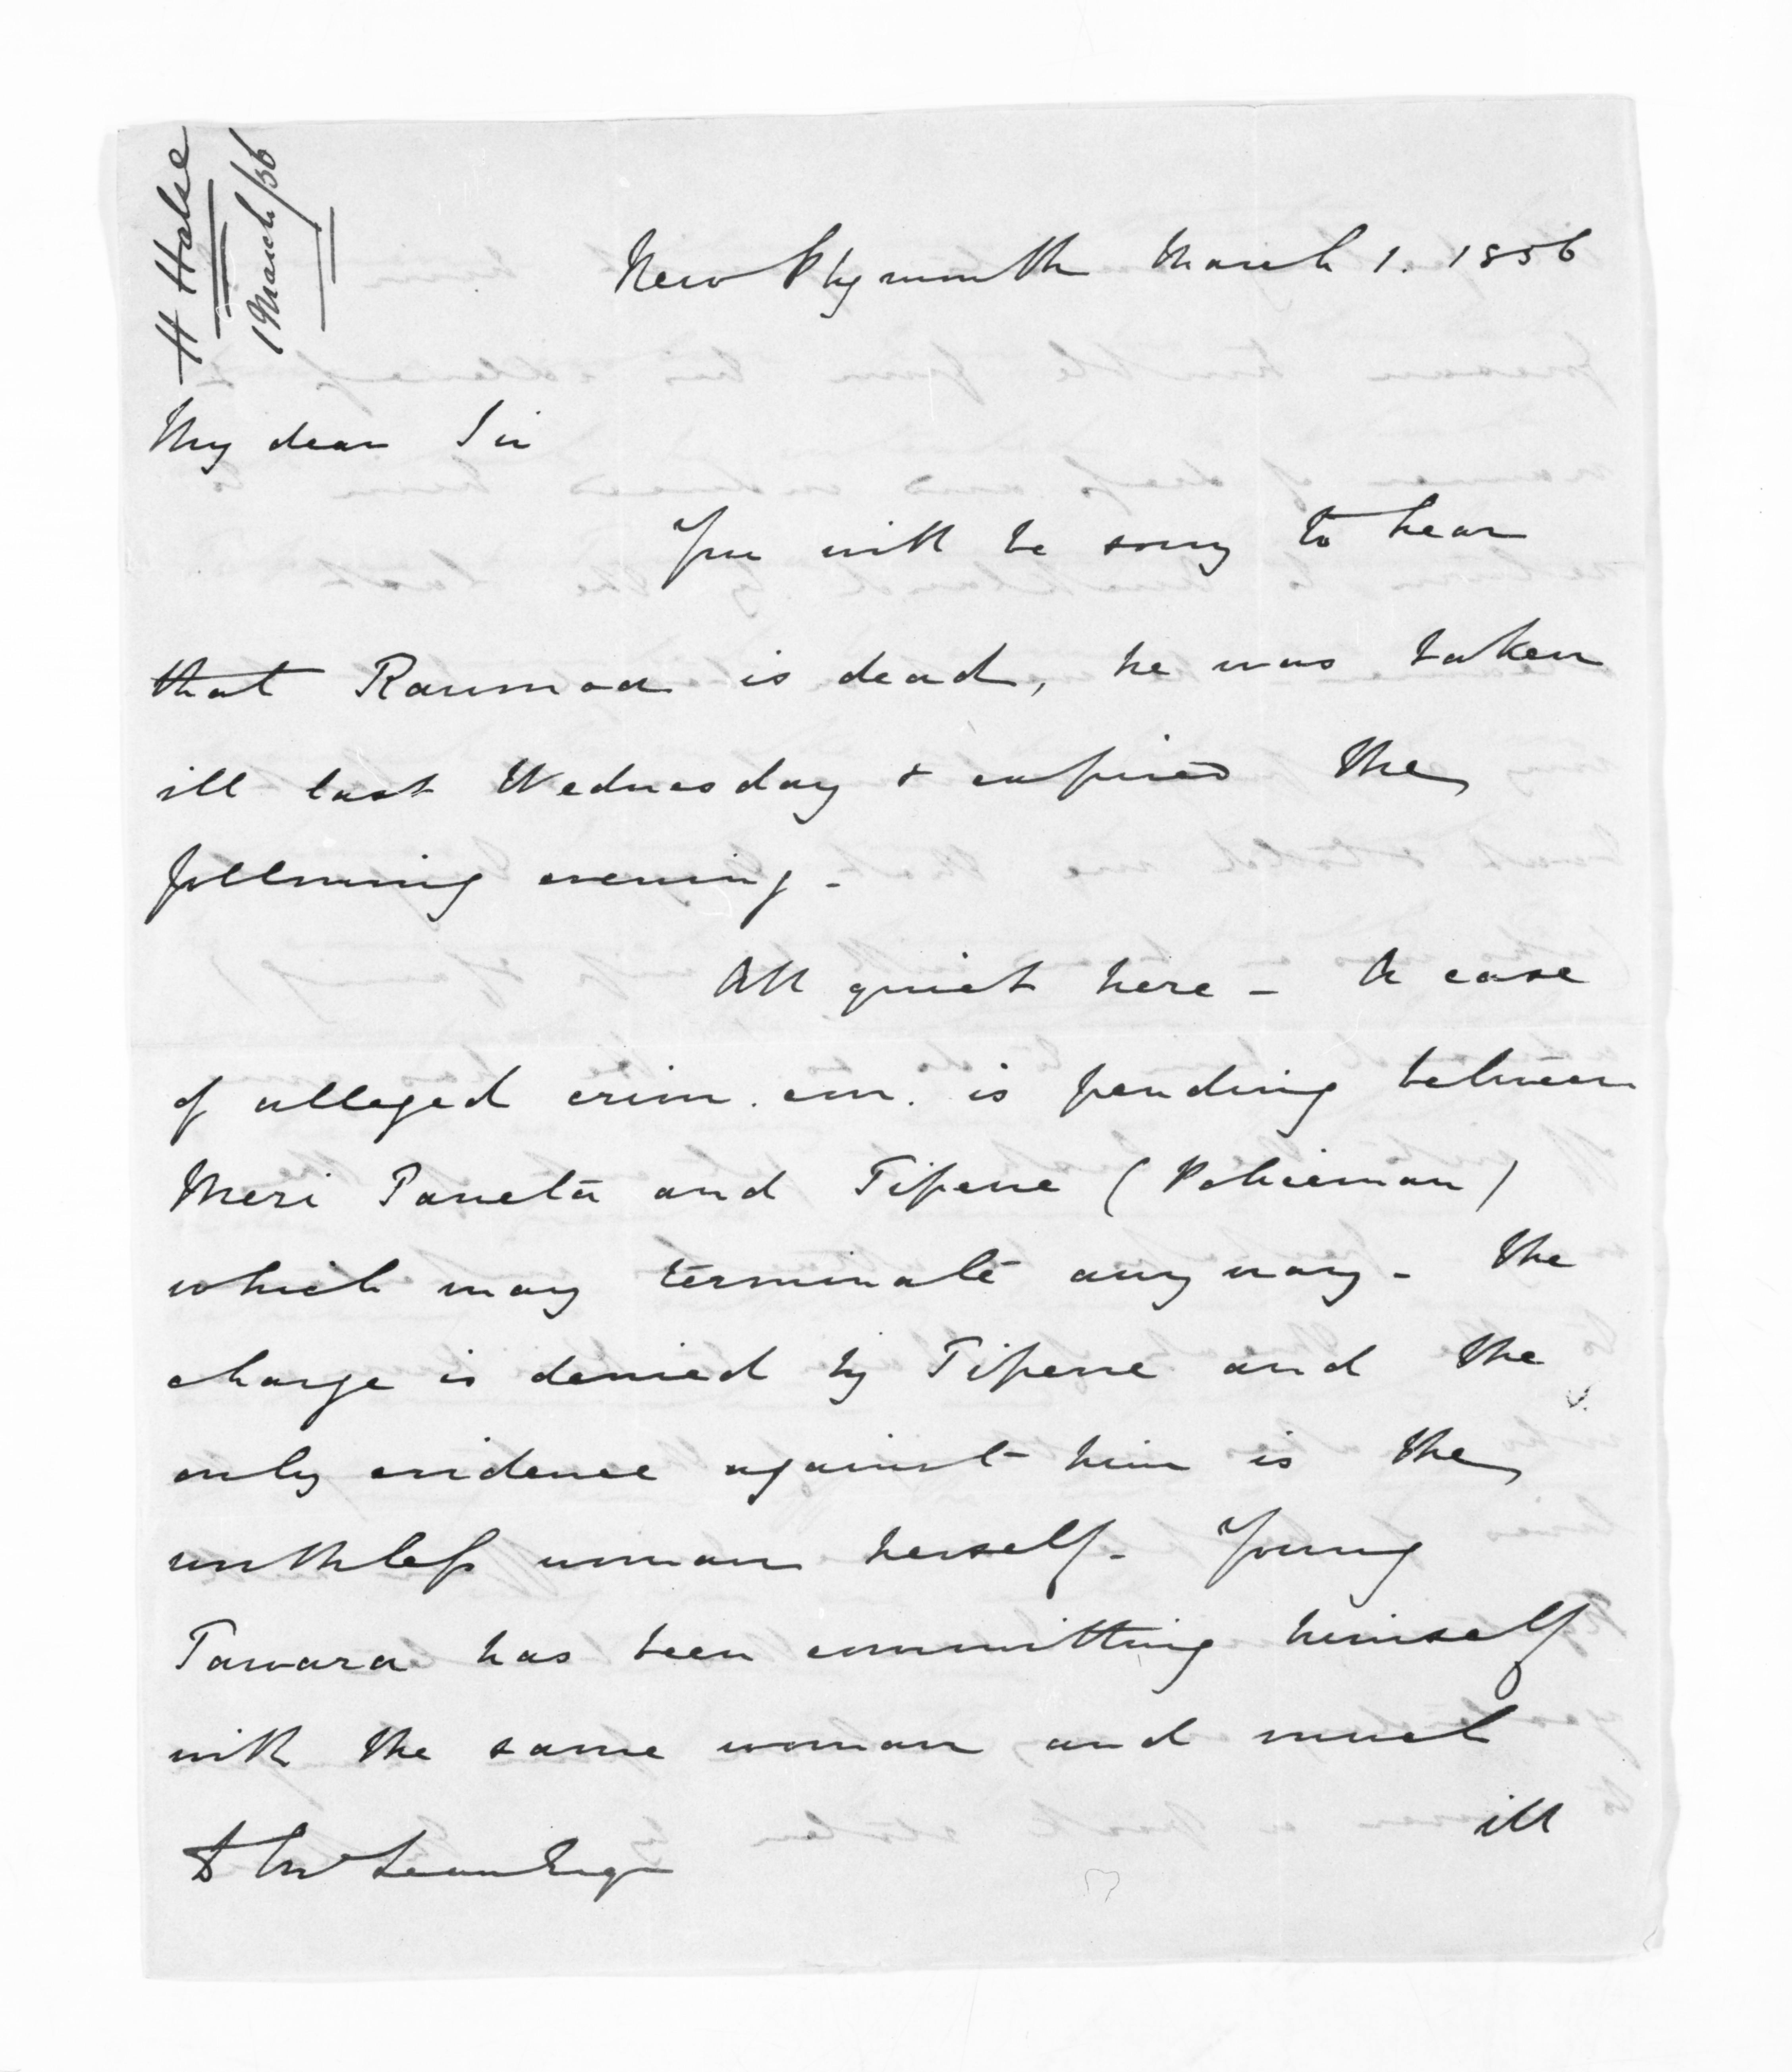 H Halse
1 March/56
New Plymouth March 1. 1856
My dear Sir
You will be sorry to hear
that Raumoa is dead, he was taken
ill last Wednesday & expired the
following evening -
All quiet here - A case
of alleged crim. con. is pending between
Meri Paneta and Tipene (Policeman)
which may terminate any way - the
charge is denied by Tipene and the
only evidence against him is the
worthless woman herself - Young
Tawara has been committing himself
with the same woman and much
ill
D McLean Esqr